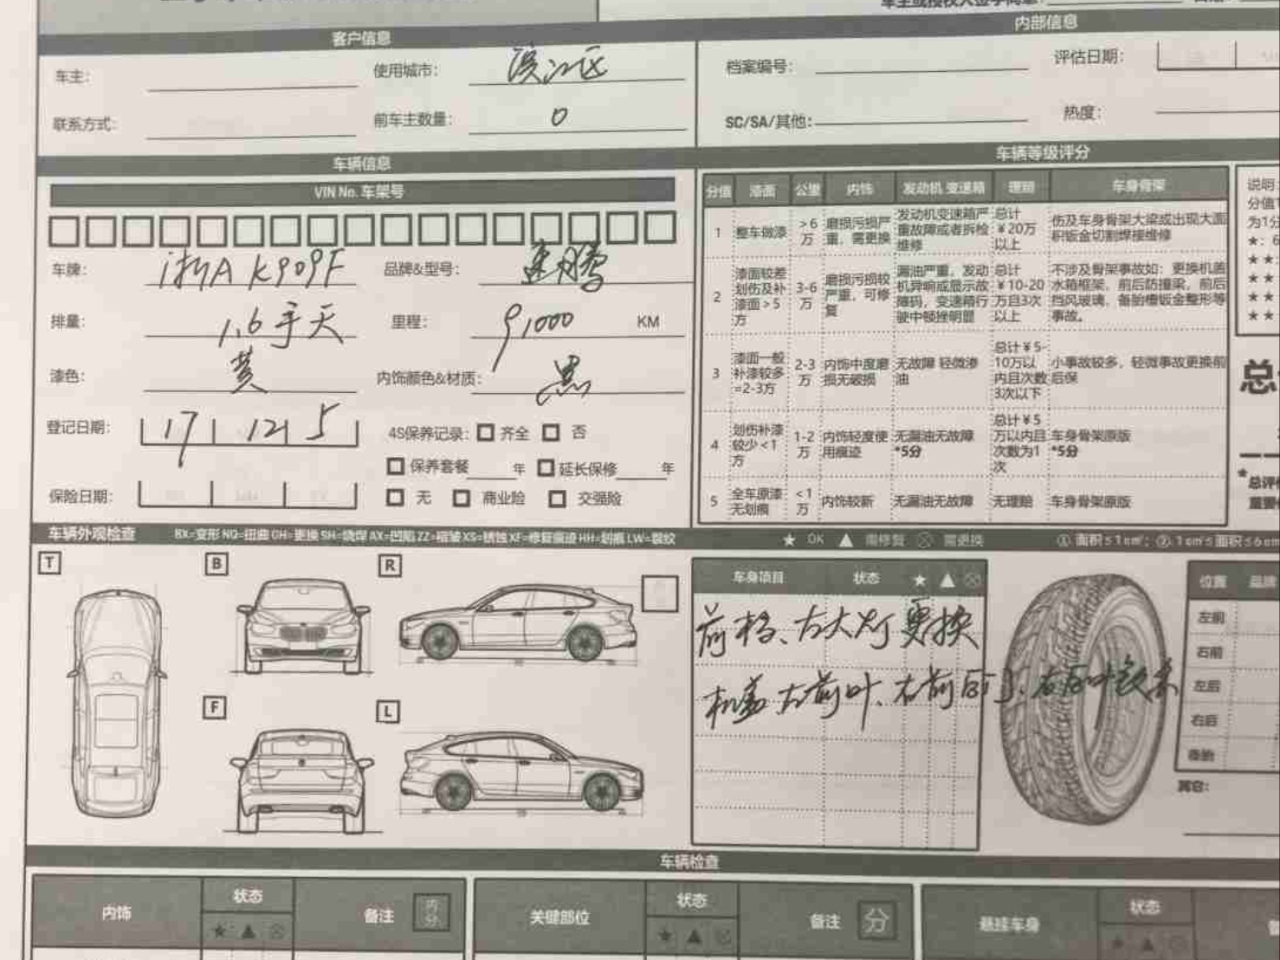 客户信息
内部信息
车主:
使用城市: 滨江区
档案编号:
评估日期:
联系方式:
前车主数量: 0
SC/SA/其他:
热度:
车辆信息
车辆等级评分
VIN No. 车架号
车牌: 浙A K909F
品牌&型号: 速腾
排量: 1.6手天
里程: 91000 KM
漆色: 黄
内饰颜色&材质: 黑
登记日期: 17 12 5
4S保养记录: 齐全 否
保养套餐 年 延长保修 年
保险日期:
无 商业险 交强险
分值 漆面 公里 内饰 发动机 变速箱 理赔 车身骨架
1 整车做漆 >6万 磨损污损严重，需更换 发动机变速箱严重故障或者拆检维修 总计¥20万以上 伤及车身骨架大梁或出现大面积钣金切割焊接维修
2 漆面较差划伤及补漆面>5方 3-6万 磨损污损较严重，可修复 漏油严重，发动机异响或显示故障码，变速箱行驶中顿挫明显 总计¥10-20万且3次以上 不涉及骨架事故如：更换机盖水箱框架，前后防撞梁，前后挡风玻璃，备胎槽钣金整形等事故。
3 漆面一般补漆较多=2-3方 2-3万 内饰中度磨损无破损 无故障 轻微渗油 总计¥5-10万以内且次数3次以下 小事故较多，轻微事故更换前后保
4 划伤补漆较少<1方 1-2万 内饰轻度使用痕迹 无漏油无故障*5分 总计¥5万以内且次数为1次 车身骨架原版*5分
5 全车原漆无划痕 <1万 内饰较新 无漏油无故障 无理赔 车身骨架原版
说明:
分值
为1分
总
车辆外观检查
BX=变形 NQ=扭曲 GH=更换 SH=烧焊 AX=凹陷 ZZ=褶皱 XS=锈蚀 XF=修复痕迹 HH=划痕 LW=裂纹
★ OK ▲ 需修复 ⊗ 需更换
① 面积≤1c㎡;
T
B
R
F
L
车身项目 状态 ★ ▲ ⊗
前杠、左大灯更换
机盖 左前叶、右前后门、右后叶钣金
位置 品牌
左前
右前
左后
右后
备胎
其它:
车辆检查
内饰 状态 备注 内分
★ ▲ ⊗
关键部位 状态 备注 分
★ ▲ ⊗
悬挂车身 状态
★ ▲ ⊗